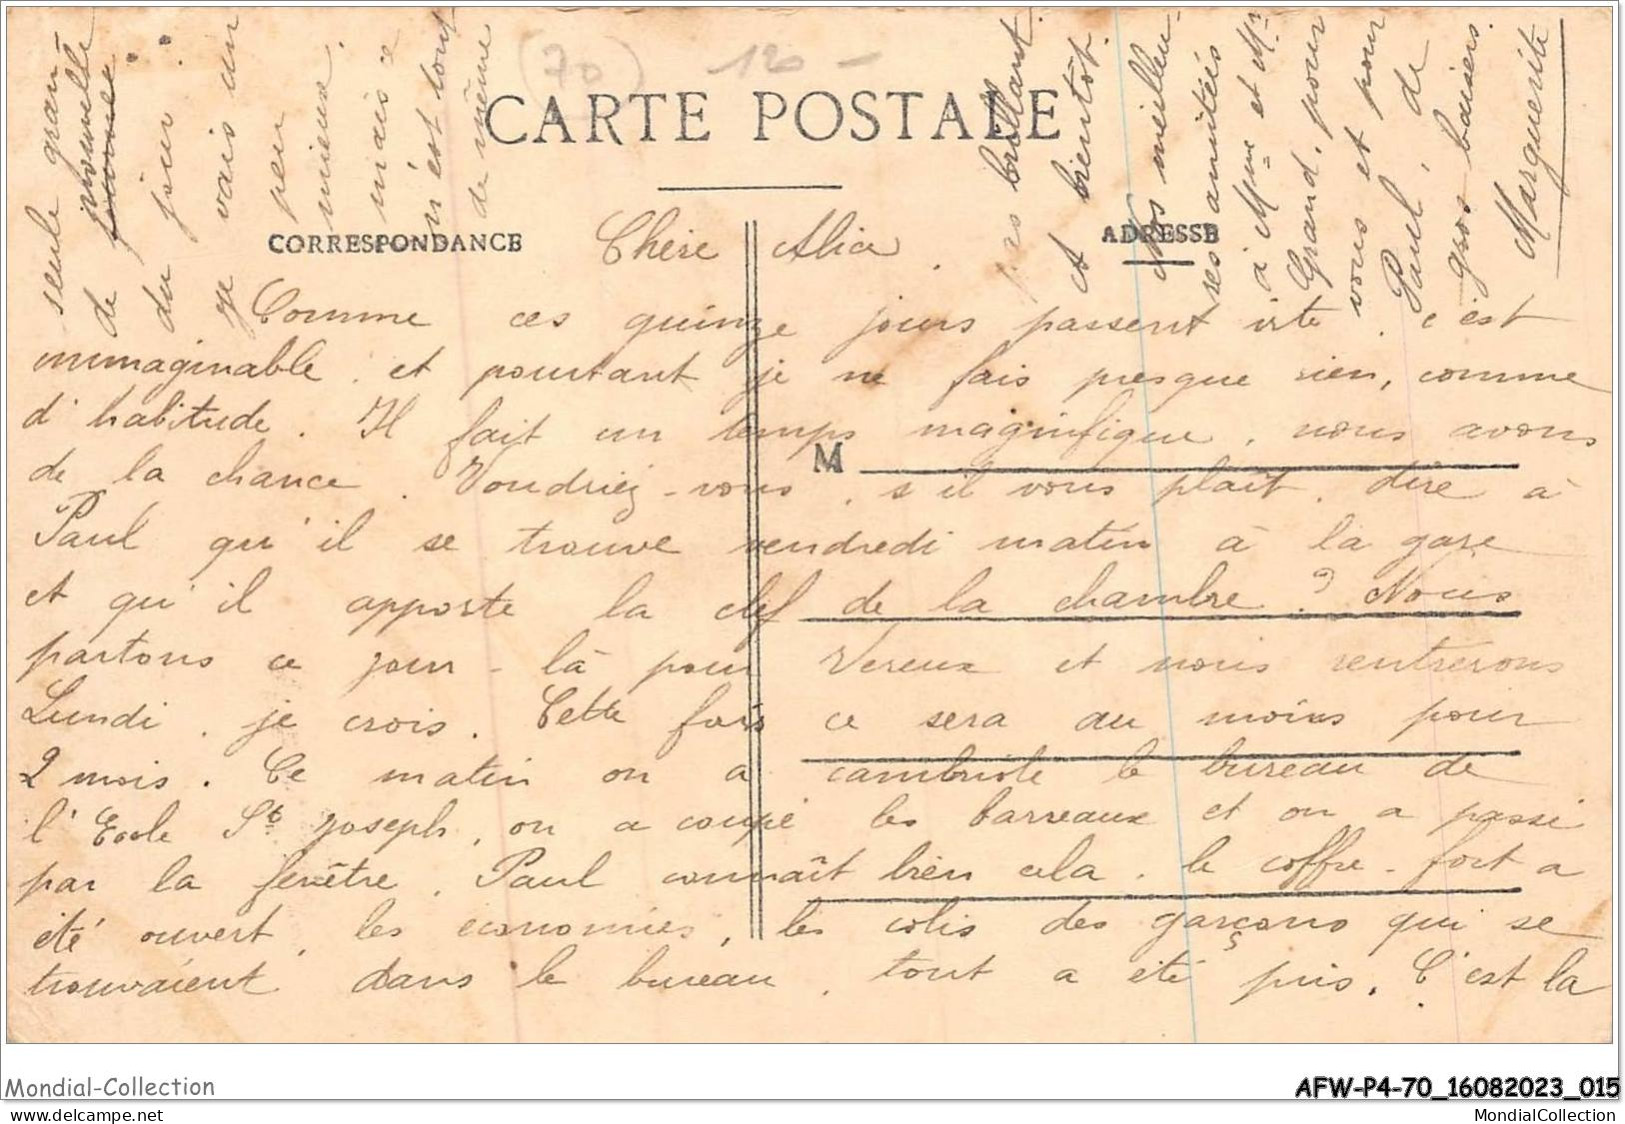 (70) 120 -
CARTE POSTALE
CORRESPONDANCE
ADRESSE
M
Chère Alice,
Comme ces quinze jours passent vite. c'est
immaginable. et pourtant je ne fais presque rien, comme
d'habitude. Il fait un temps magnifique, nous avons
de la chance. Voudriez-vous, s'il vous plaît, dire à
Paul qu'il se trouve vendredi matin à la gare
et qu'il apporte la clef de la chambre? Nous
partons ce jour-là pour Vereux et nous rentrerons
Lundi, je crois. Cette fois ce sera au moins pour
2 mois. Ce matin on a cambriolé le bureau de
l'Ecole St Joseph, on a coupé les barreaux et on a passé
par la fenêtre. Paul connaît bien cela. le coffre-fort a
été ouvert, les économies, les colis des garçons qui se
trouvaient dans le bureau, tout a été pris. C'est la
seule gran-
de nouvelle
du jour.
Je vais un
peu
mieux.
mais ce
n'est tout
de même
pas brillant.
A bientôt.
Nos meilleu-
res amitiés
à Mme et Mr
Grand, pour
vous et pour
Paul, de
gros baisers.
Marguerite
Mondial-Collection
AFW-P4-70_16082023_015
MondialCollection.com
MondialCollection